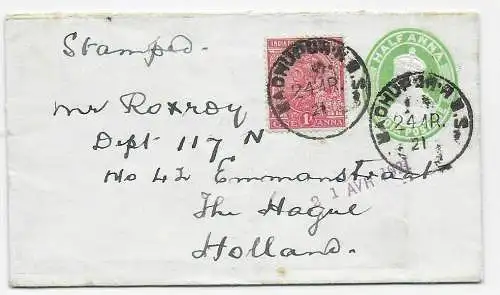 Stamped.
INDIA
1 ANNA
HALF ANNA
MADHUPUR
24 AP.
21
MADHUPUR
24 AP.
21
Mr Roxroy
Dept 117 N
No 42 Emmanstraat
The Hague
Holland.
21 AVR